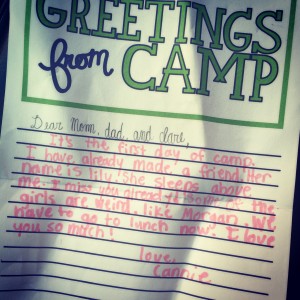 GREETINGS
from CAMP
Dear Mom, dad, and
It's the first day of camp.
I have already made a friend. Her
name is lily. She sleeps above
me. I miss you already. Some of the
girls are weird, like Morgan. We
have to go to lunch now. I love
you so much!
love,
Cannie